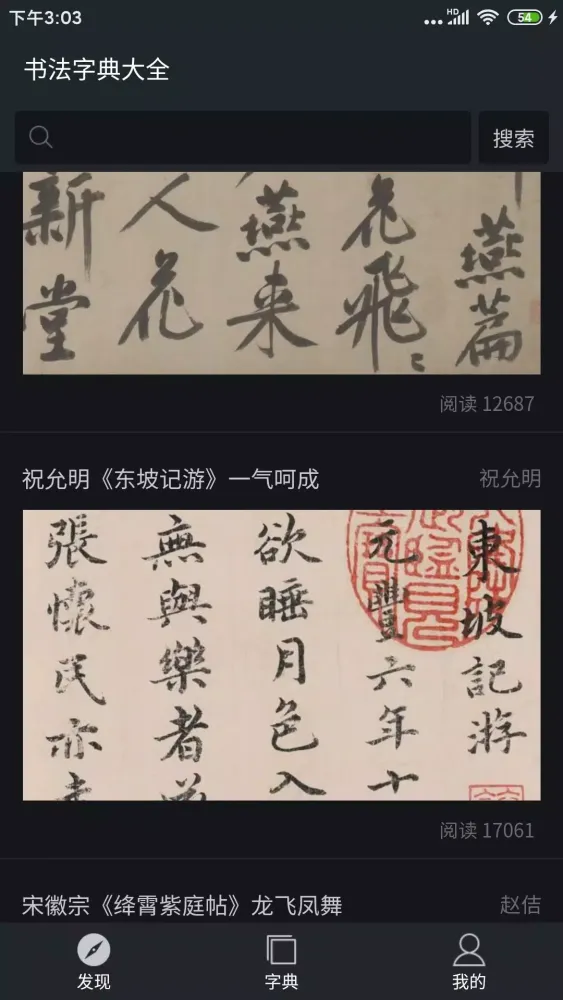 下午3:03
HD
54
书法字典大全
搜索
燕篇
花飛
燕来
人花
新堂
阅读 12687
祝允明《东坡记游》一气呵成
祝允明
東坡記游
元豐六年十
欲睡月色入
無與樂者
張懷民亦
阅读 17061
宋徽宗《绛霄紫庭帖》龙飞凤舞
赵佶
发现
字典
我的